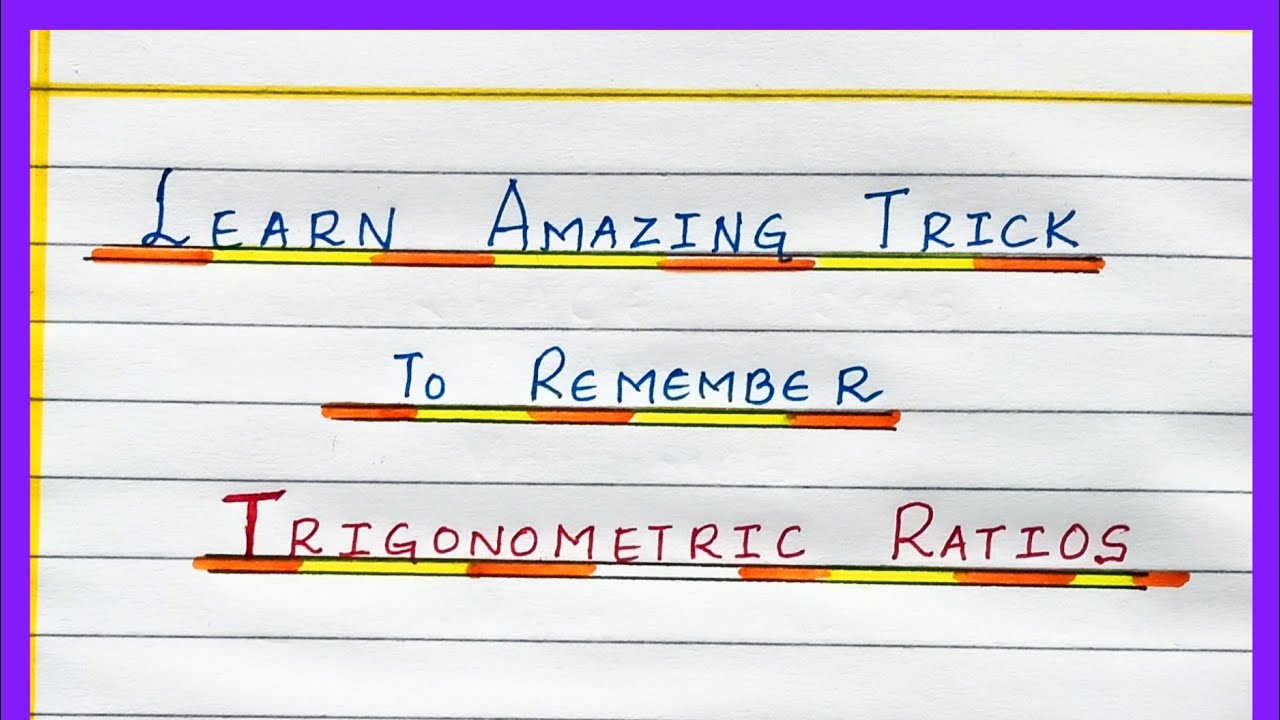 LEARN AMAZING TRICK
TO REMEMBER
TRIGONOMETRIC RATIOS